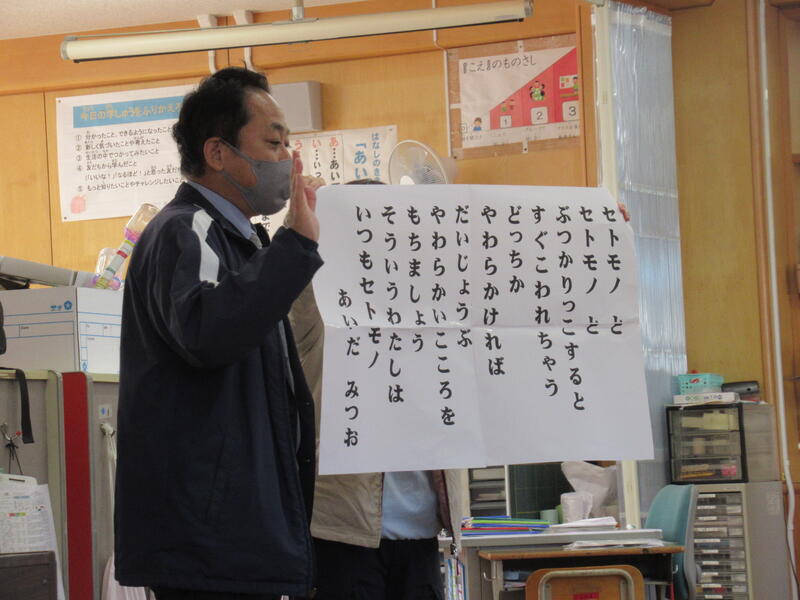 セトモノ と
セトモノ と
ぶつかりっこすると
すぐこわれちゃう
どっちか
やわらかければ
だいじょうぶ
やわらかいこころを
もちましょう
そういうわたしは
いつもセトモノ
あいだ みつお
こえのものさし
1
2
3
はなしのき
「あい
あ…あい
い…い
う
今日の学しゅうをふりかえ
① 分かったこと、できるようになったこと
② 新しく気づいたことや考えたこと
③ 生活の中でつかってみたいこと
④ 友だちから学んだこと
「いいな!」「なるほど!」と思った友だ
⑤ もっと知りたいことやチャレンジしたいこ